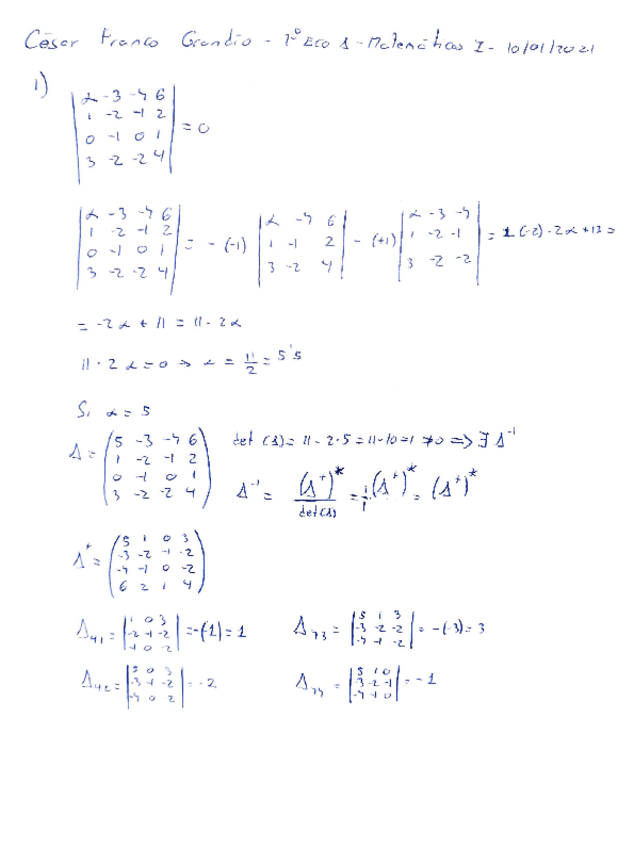 César Franco Grandío - 1º Eco 1 - Matemáticas I - 10/01/2021
1)
| α -3 -4 6 |
| 1 -2 -1 2 |
| 0 -1 0 1 | = 0
| 3 -2 -2 4 |
| α -3 -4 6 |
| 1 -2 -1 2 |
| 0 -1 0 1 |
| 3 -2 -2 4 | = - (-1) | α -4 6 | 1 -1 2 | 3 -2 4 | - (+1) | α -3 -4 | 1 -2 -1 | 3 -2 -2 | = 1(-2) - 2α + 13 =
= -2α + 11 = 11 - 2α
11 - 2α = 0 => α = 11/2 = 5'5
Si α = 5
A = ( 5 -3 -4 6 ) det (A) = 11 - 2·5 = 11 - 10 = 1 ≠ 0 => ∃ A⁻¹
( 1 -2 -1 2 )
( 0 -1 0 1 )
( 3 -2 -2 4 ) A⁻¹ = (A⁺)* / det(A) = 1/1 (A⁺)* = (A⁺)*
A⁺ = ( 5 1 0 3 )
( -3 -2 -1 -2 )
( -4 -1 0 -2 )
( 6 2 1 4 )
A₄₁ = | 1 0 3 | -2 -1 -2 | -1 0 -2 | = -(1) = 1 A₄₃ = | 5 1 3 | -3 -2 -2 | -4 -1 -2 | = -(-3) = 3
A₄₂ = | 5 0 3 | -3 -1 -2 | -4 0 2 | = -2 A₄₄ = | 5 1 0 | -3 -2 -1 | -4 -1 0 | = -1